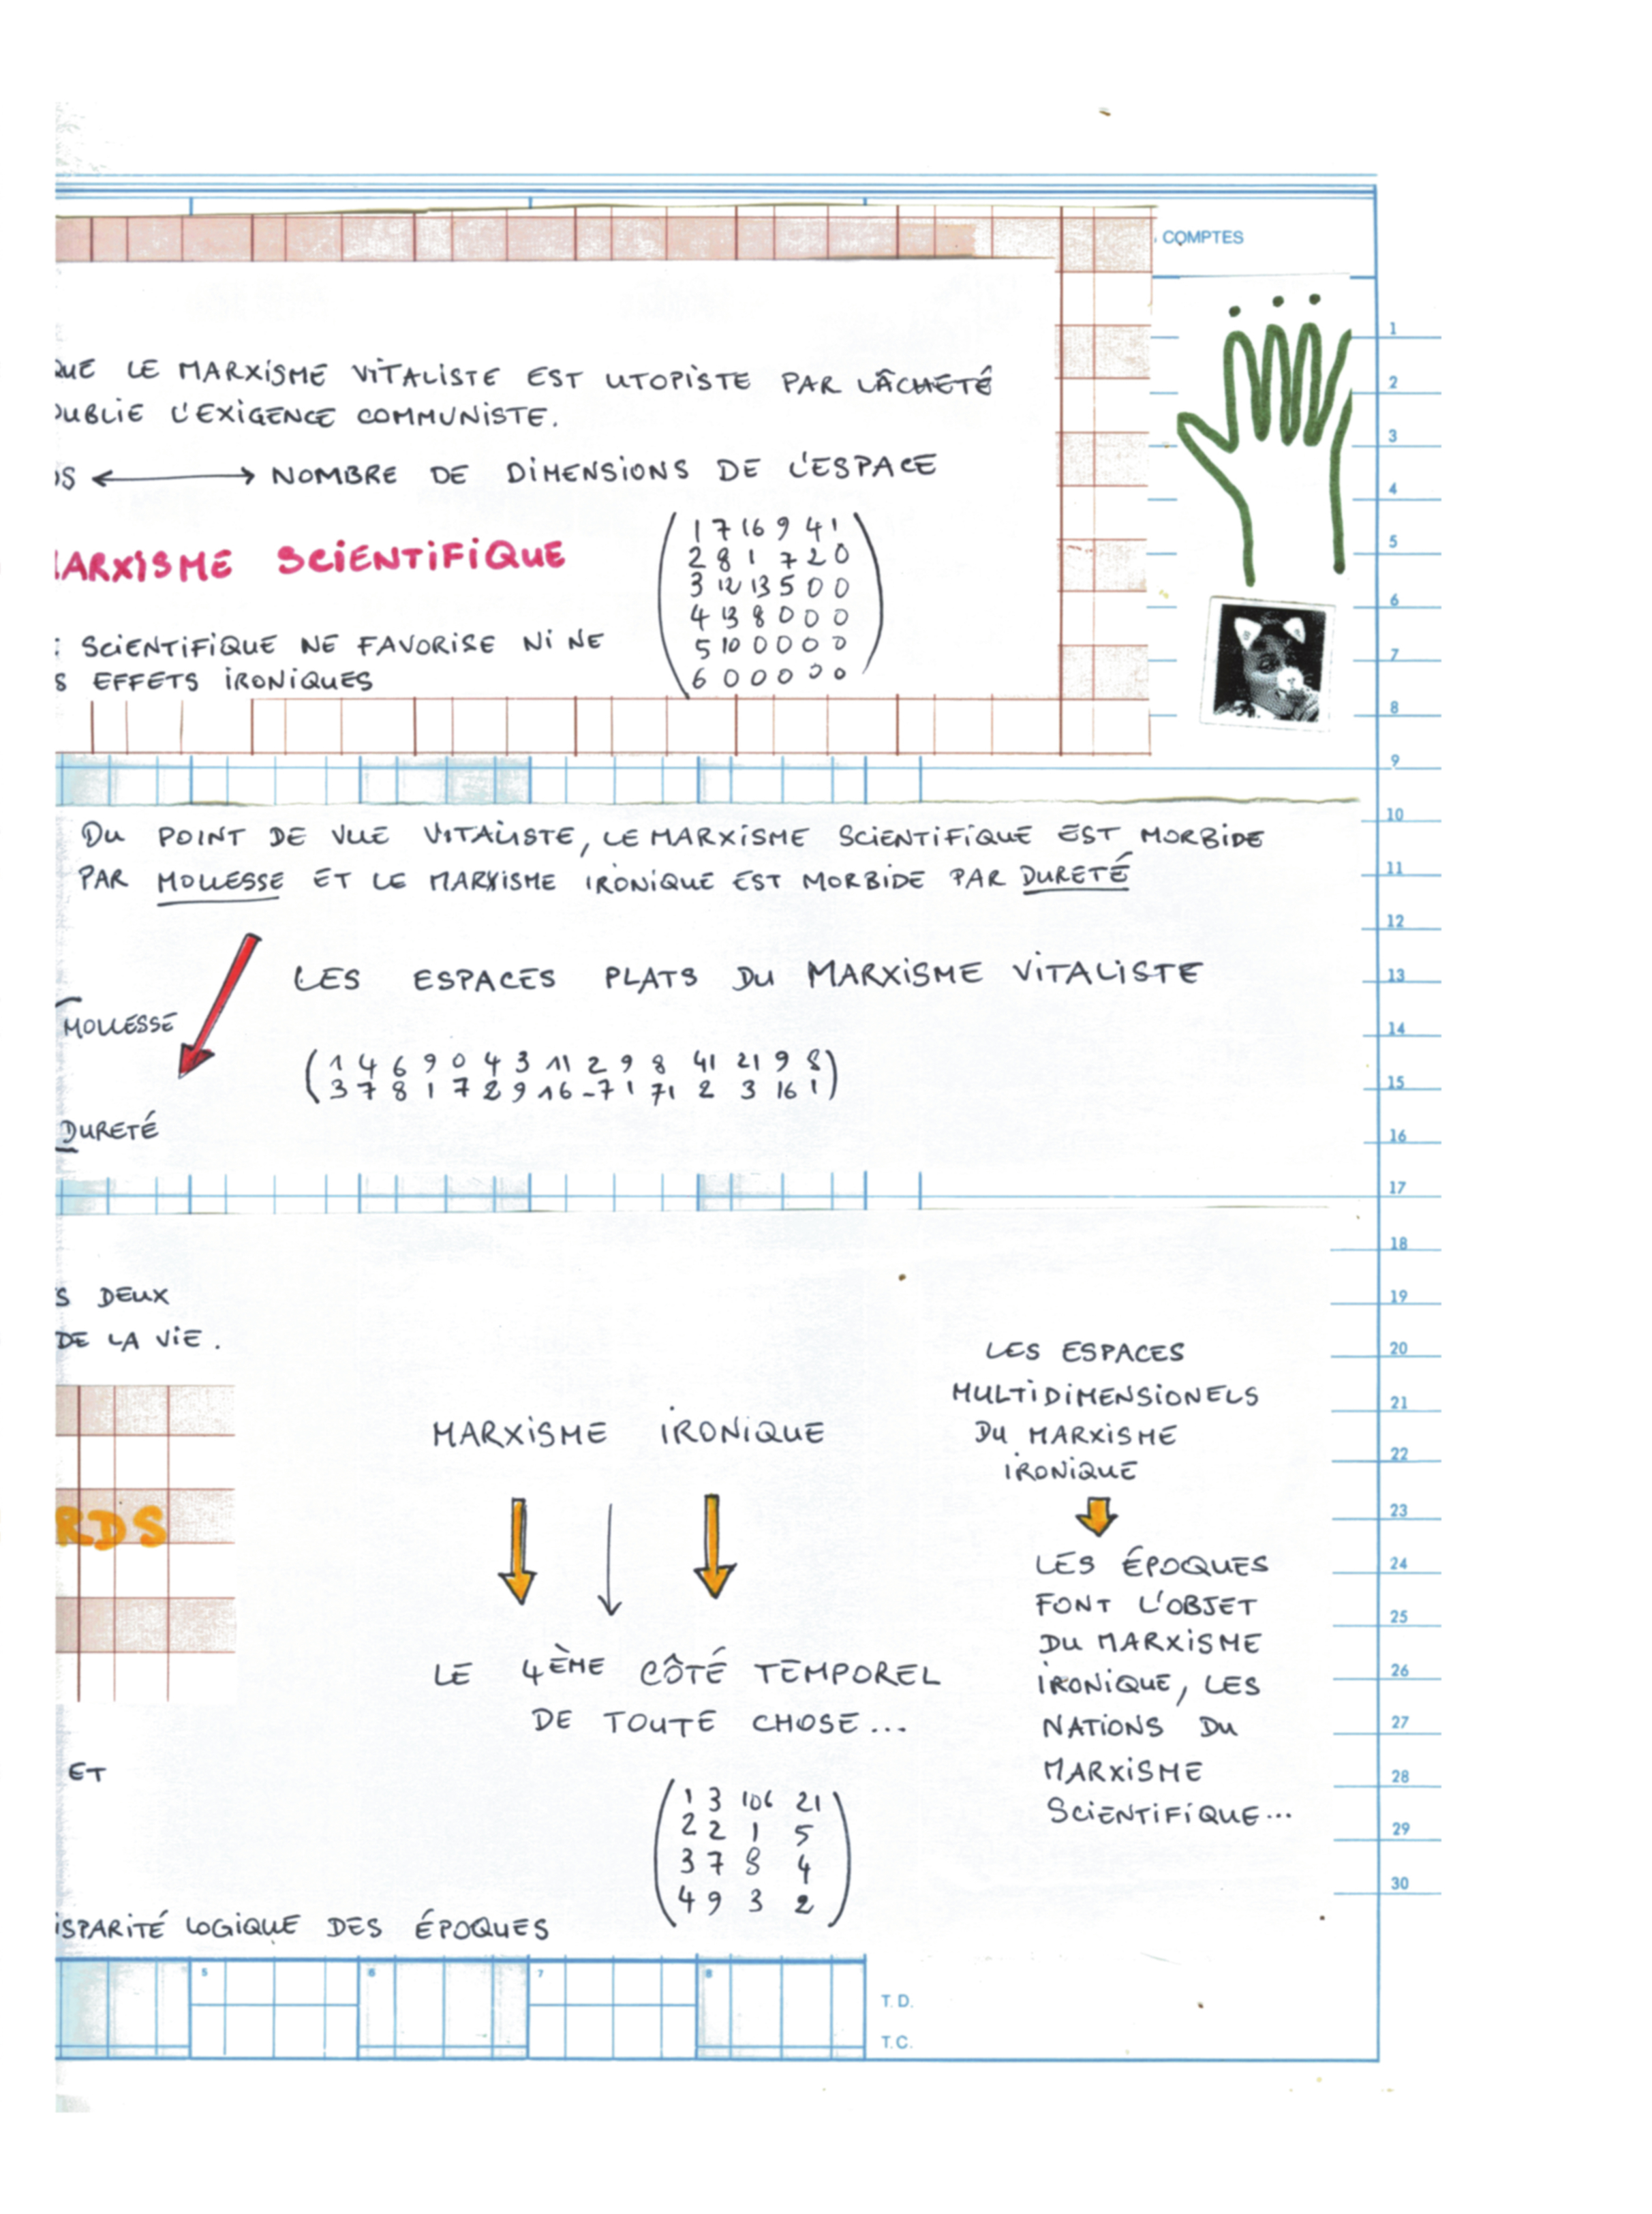 COMPTES
QUE LE MARXISME VITALISTE EST UTOPISTE PAR LÂCHETÉ
OUBLIE L'EXIGENCE COMMUNISTE.
S ⟷ NOMBRE DE DIMENSIONS DE L'ESPACE
MARXISME SCIENTIFIQUE
1 7 16 9 4 1
2 8 1 7 2 0
3 12 13 5 0 0
4 13 8 0 0 0
5 10 0 0 0 0
6 0 0 0 0 0
SCIENTIFIQUE NE FAVORISE NI NE
S EFFETS IRONIQUES
DU POINT DE VUE VITALISTE, LE MARXISME SCIENTIFIQUE EST MORBIDE
PAR MOLLESSE ET LE MARXISME IRONIQUE EST MORBIDE PAR DURETÉ
LES ESPACES PLATS DU MARXISME VITALISTE
MOLLESSE
1 4 6 9 0 4 3 11 2 9 8 41 21 9 8
3 7 8 1 7 2 9 16 -7 1 71 2 3 16 1
DURETÉ
S DEUX
DE LA VIE.
RDS
MARXISME IRONIQUE
LE 4ÈME CÔTÉ TEMPOREL
DE TOUTE CHOSE...
LES ESPACES
MULTIDIMENSIONELS
DU MARXISME
IRONIQUE
LES ÉPOQUES
FONT L'OBJET
DU MARXISME
IRONIQUE, LES
NATIONS DU
MARXISME
SCIENTIFIQUE...
ET
1 3 106 21
2 2 1 5
3 7 8 4
4 9 3 2
ISPARITÉ LOGIQUE DES ÉPOQUES
5 6 7 8
T.D.
T.C.
1
2
3
4
5
6
7
8
9
10
11
12
13
14
15
16
17
18
19
20
21
22
23
24
25
26
27
28
29
30